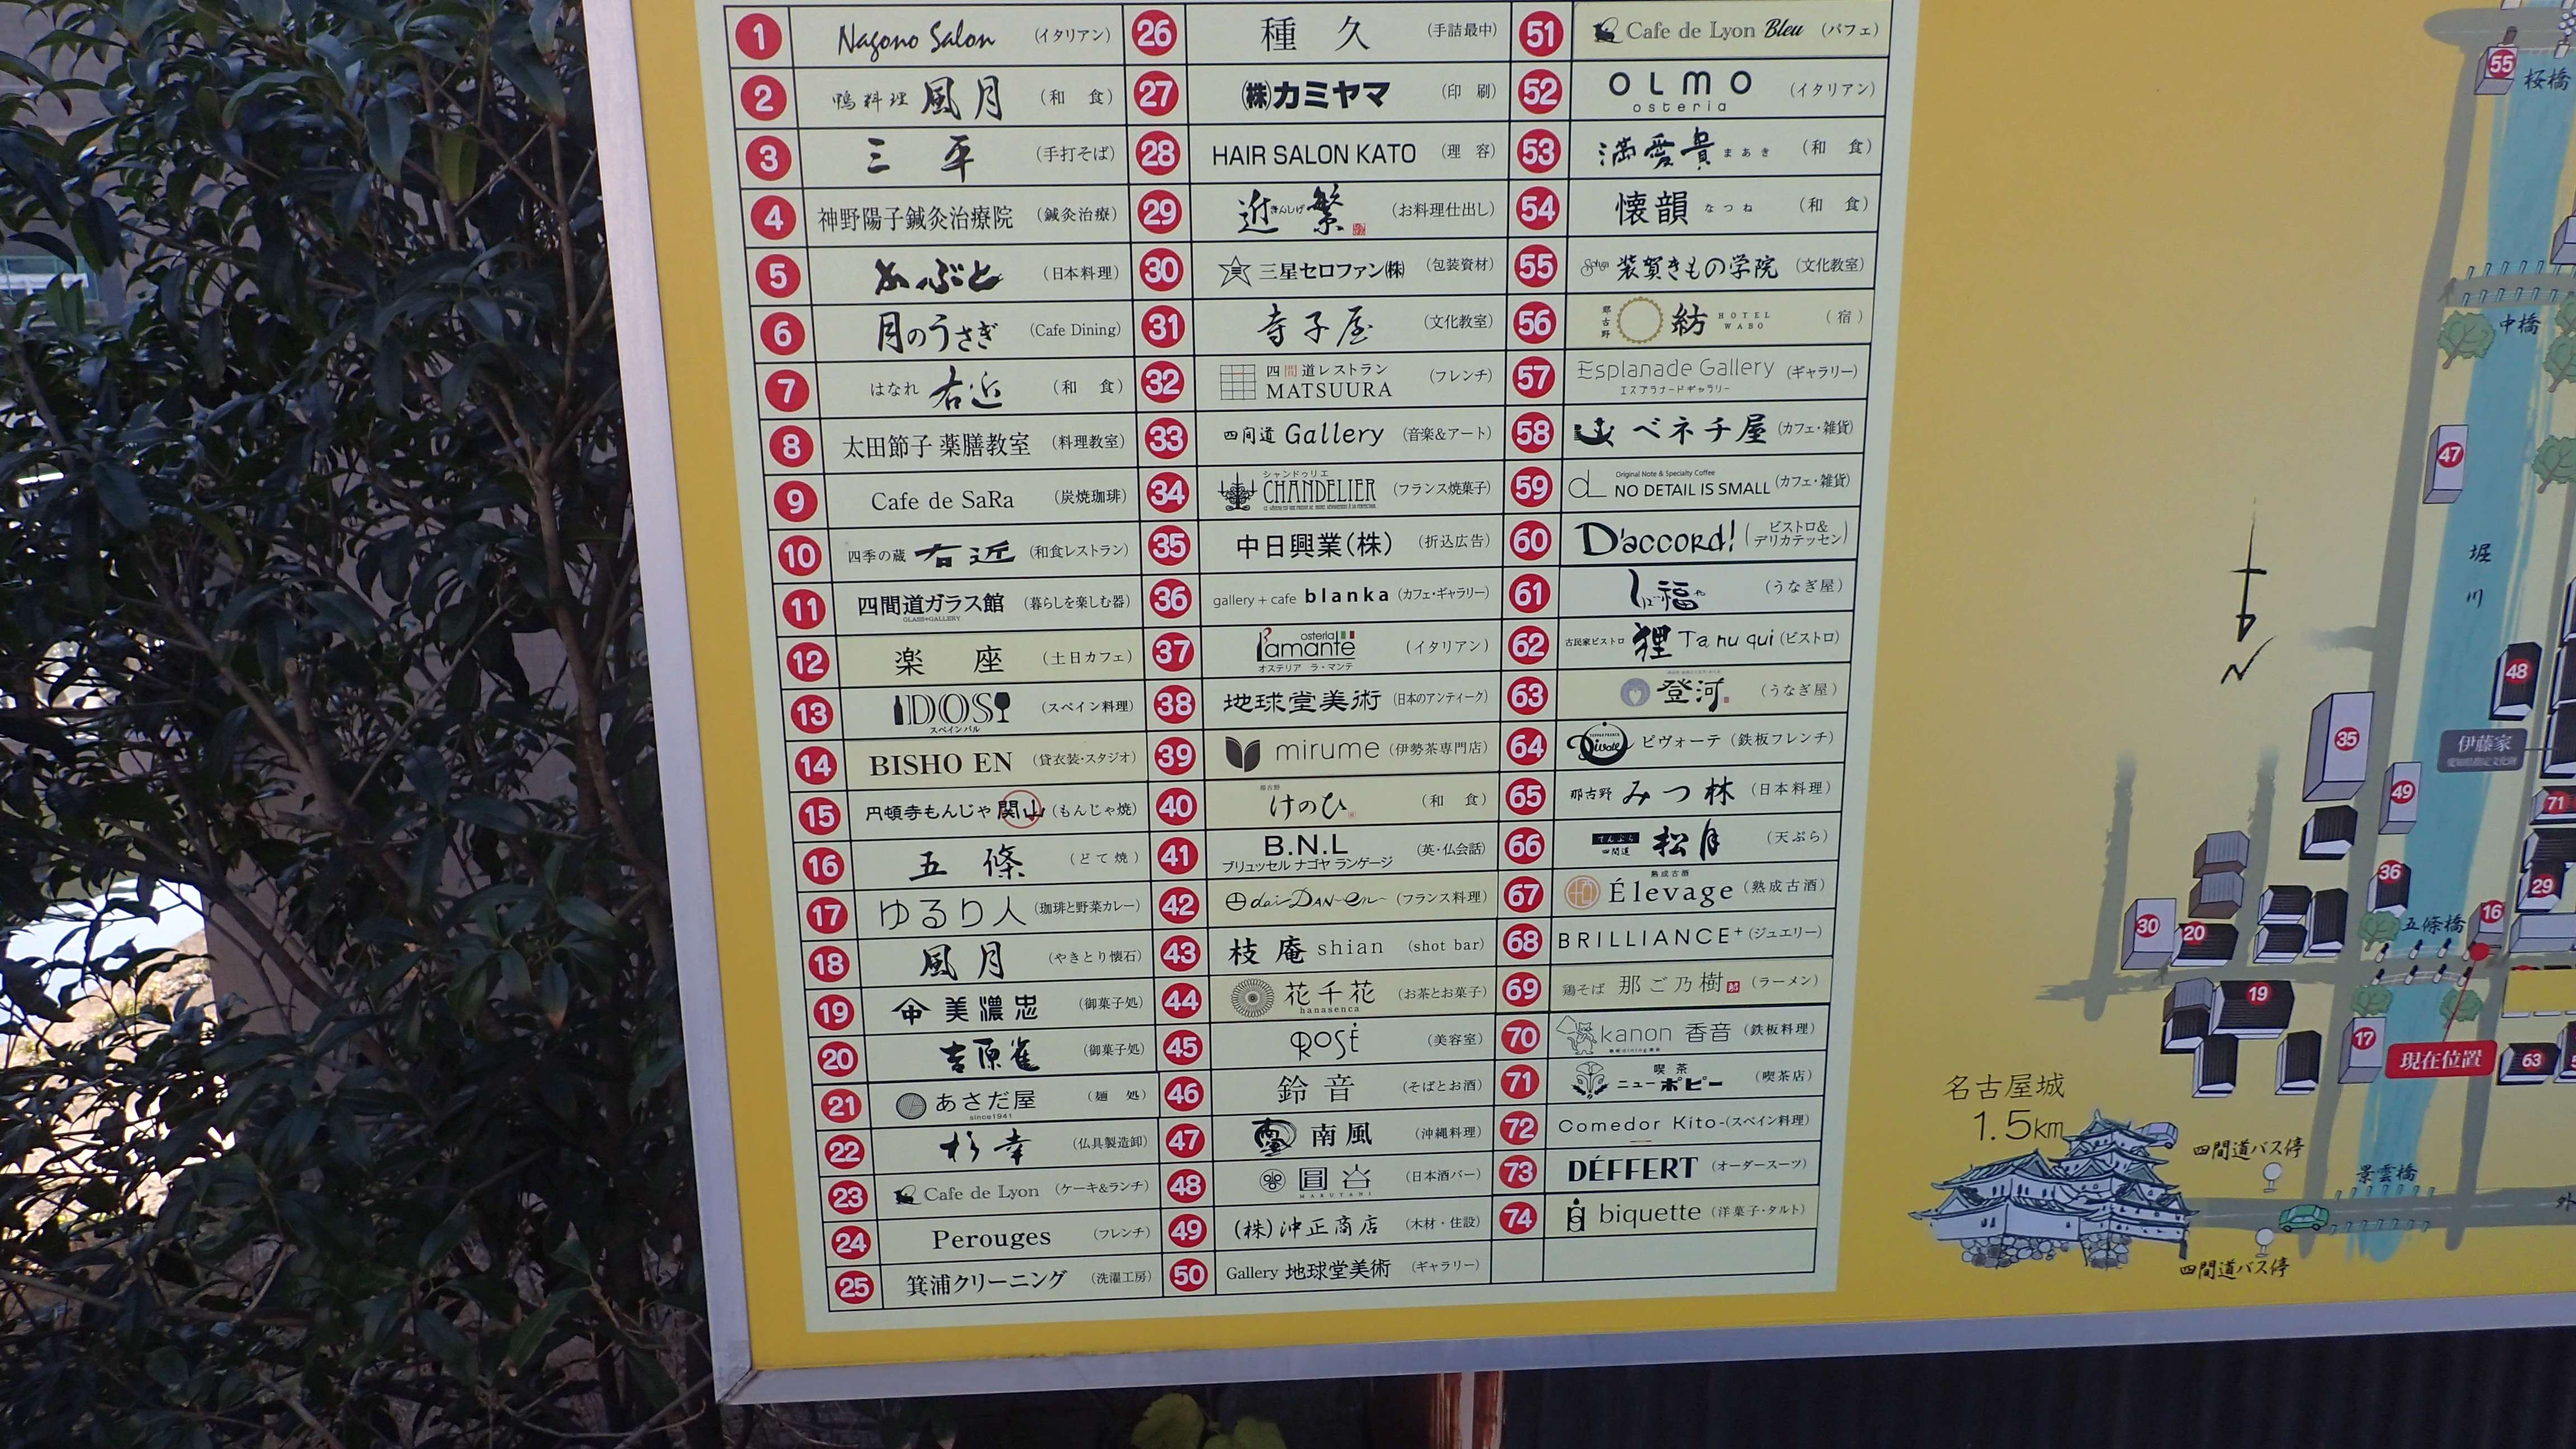 1 Nagono Salon (イタリアン)
2 鴨料理 風月 (和 食)
3 三平 (手打そば)
4 神野陽子鍼灸治療院 (鍼灸治療)
5 かぶと (日本料理)
6 月のうさぎ (Cafe Dining)
7 はなれ 右近 (和 食)
8 太田節子 薬膳教室 (料理教室)
9 Cafe de SaRa (炭焼珈琲)
10 四季の蔵 右近 (和食レストラン)
11 四間道ガラス館 (暮らしを楽しむ器)
GLASS+GALLERY
12 楽座 (土日カフェ)
13 DOS (スペイン料理)
スペインバル
14 BISHO EN (貸衣装・スタジオ)
15 円頓寺もんじゃ 関山 (もんじゃ焼)
16 五條 (どて焼)
17 ゆるり人 (珈琲と野菜カレー)
18 風月 (やきとり懐石)
19 中 美濃忠 (御菓子処)
20 吉原雀 (御菓子処)
21 あさだ屋 (麺 処)
since1941
22 杉幸 (仏具製造卸)
23 Cafe de Lyon (ケーキ&ランチ)
24 Perouges (フレンチ)
25 箕浦クリーニング (洗濯工房)
26 種久 (手詰最中)
27 ㈱カミヤマ (印 刷)
28 HAIR SALON KATO (理 容)
29 近繁 きんしげ (お料理仕出し)
30 三星セロファン㈱ (包装資材)
31 寺子屋 (文化教室)
32 四間道レストラン
MATSUURA (フレンチ)
33 四间道 Gallery (音楽&アート)
34 シャンドゥリエ
CHANDELIER (フランス焼菓子)
35 中日興業(株) (折込広告)
36 gallery + cafe blanka (カフェ・ギャラリー)
37 osteria
l'amante (イタリアン)
オステリア ラ・マンテ
38 地球堂美術 (日本のアンティーク)
39 mirume (伊勢茶専門店)
40 那古野
けのひ (和 食)
41 B.N.L (英・仏会話)
ブリュッセル ナゴヤ ランゲージ
42 dai-DAN-en- (フランス料理)
43 枝庵 shian (shot bar)
44 花千花 (お茶とお菓子)
hanasenca
45 ROSÉ (美容室)
46 鈴音 (そばとお酒)
47 南風 (沖縄料理)
48 圓谷 (日本酒バー)
MARUTANI
49 (株)沖正商店 (木材・住設)
50 Gallery 地球堂美術 (ギャラリー)
51 Cafe de Lyon Bleu (パフェ)
52 OLMO (イタリアン)
osteria
53 満愛貴 まあき (和 食)
54 懐韻 なつね (和 食)
55 装賀きもの学院 (文化教室)
56 那古野 紡 HOTEL WABO (宿)
57 Esplanade Gallery (ギャラリー)
エスプラナードギャラリー
58 ベネチ屋 (カフェ・雑貨)
59 Original Note & Specialty Coffee
NO DETAIL IS SMALL (カフェ・雑貨)
60 D'accord! (ビストロ&デリカテッセン)
61 し福 (うなぎ屋)
62 古民家ビストロ 狸 Ta nu qui (ビストロ)
63 登河 (うなぎ屋)
64 Pivote ピヴォーテ (鉄板フレンチ)
65 那古野 みつ林 (日本料理)
66 てんぷら
四間道 松月 (天ぷら)
67 熟成古酒
Élevage (熟成古酒)
68 BRILLIANCE+ (ジュエリー)
69 鶏そば 那ご乃樹 (ラーメン)
70 kanon 香音 (鉄板料理)
71 喫茶
ニューポピー (喫茶店)
72 Comedor Kito- (スペイン料理)
73 DÉFFERT (オーダースーツ)
74 biquette (洋菓子・タルト)
55 桜橋
中橋
47
堀川
N
48
35
伊藤家
49
71
36
29
30
20
五條橋
16
19
17
現在位置
63
名古屋城
1.5km
四間道バス停
景雲橋
外
四間道バス停